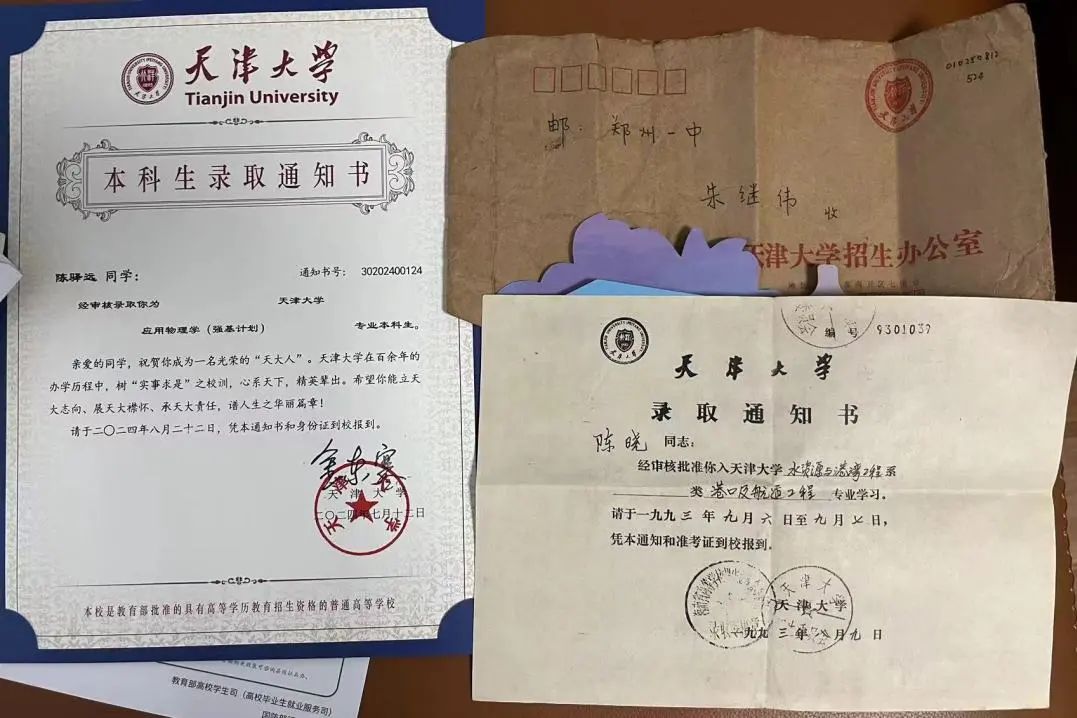 天津大学
Tianjin University
本科生录取通知书
陈驿远 同学：
通知书号： 30202400124
经审核录取你为 天津大学
应用物理学（强基计划） 专业本科生。
亲爱的同学，祝贺你成为一名光荣的“天大人”。天津大学在百余年的
办学历程中，树“实事求是”之校训，心系天下，精英辈出。希望你能立天
大志向、展天大襟怀、承天大责任，谱人生之华丽篇章！
请于二〇二四年八月二十二日，凭本通知书和身份证到校报到。
金东寒
天津大学
二〇二四年七月十二日
本校是教育部批准的具有高等学历教育招生资格的普通高等学校
教育部高校学生司（高校毕业生就业服务司）
010250812
524
邮：郑州一中
朱继伟 收
天津大学招生办公室
编号 9301039
天津大学
录取通知书
陈晓 同志：
经审核批准你入天津大学 水资源与港湾工程系
类 港口及航道工程 专业学习。
请于一九九三年九月六日至九月七日，
凭本通知和准考证到校报到。
天津大学
一九九三年八月九日